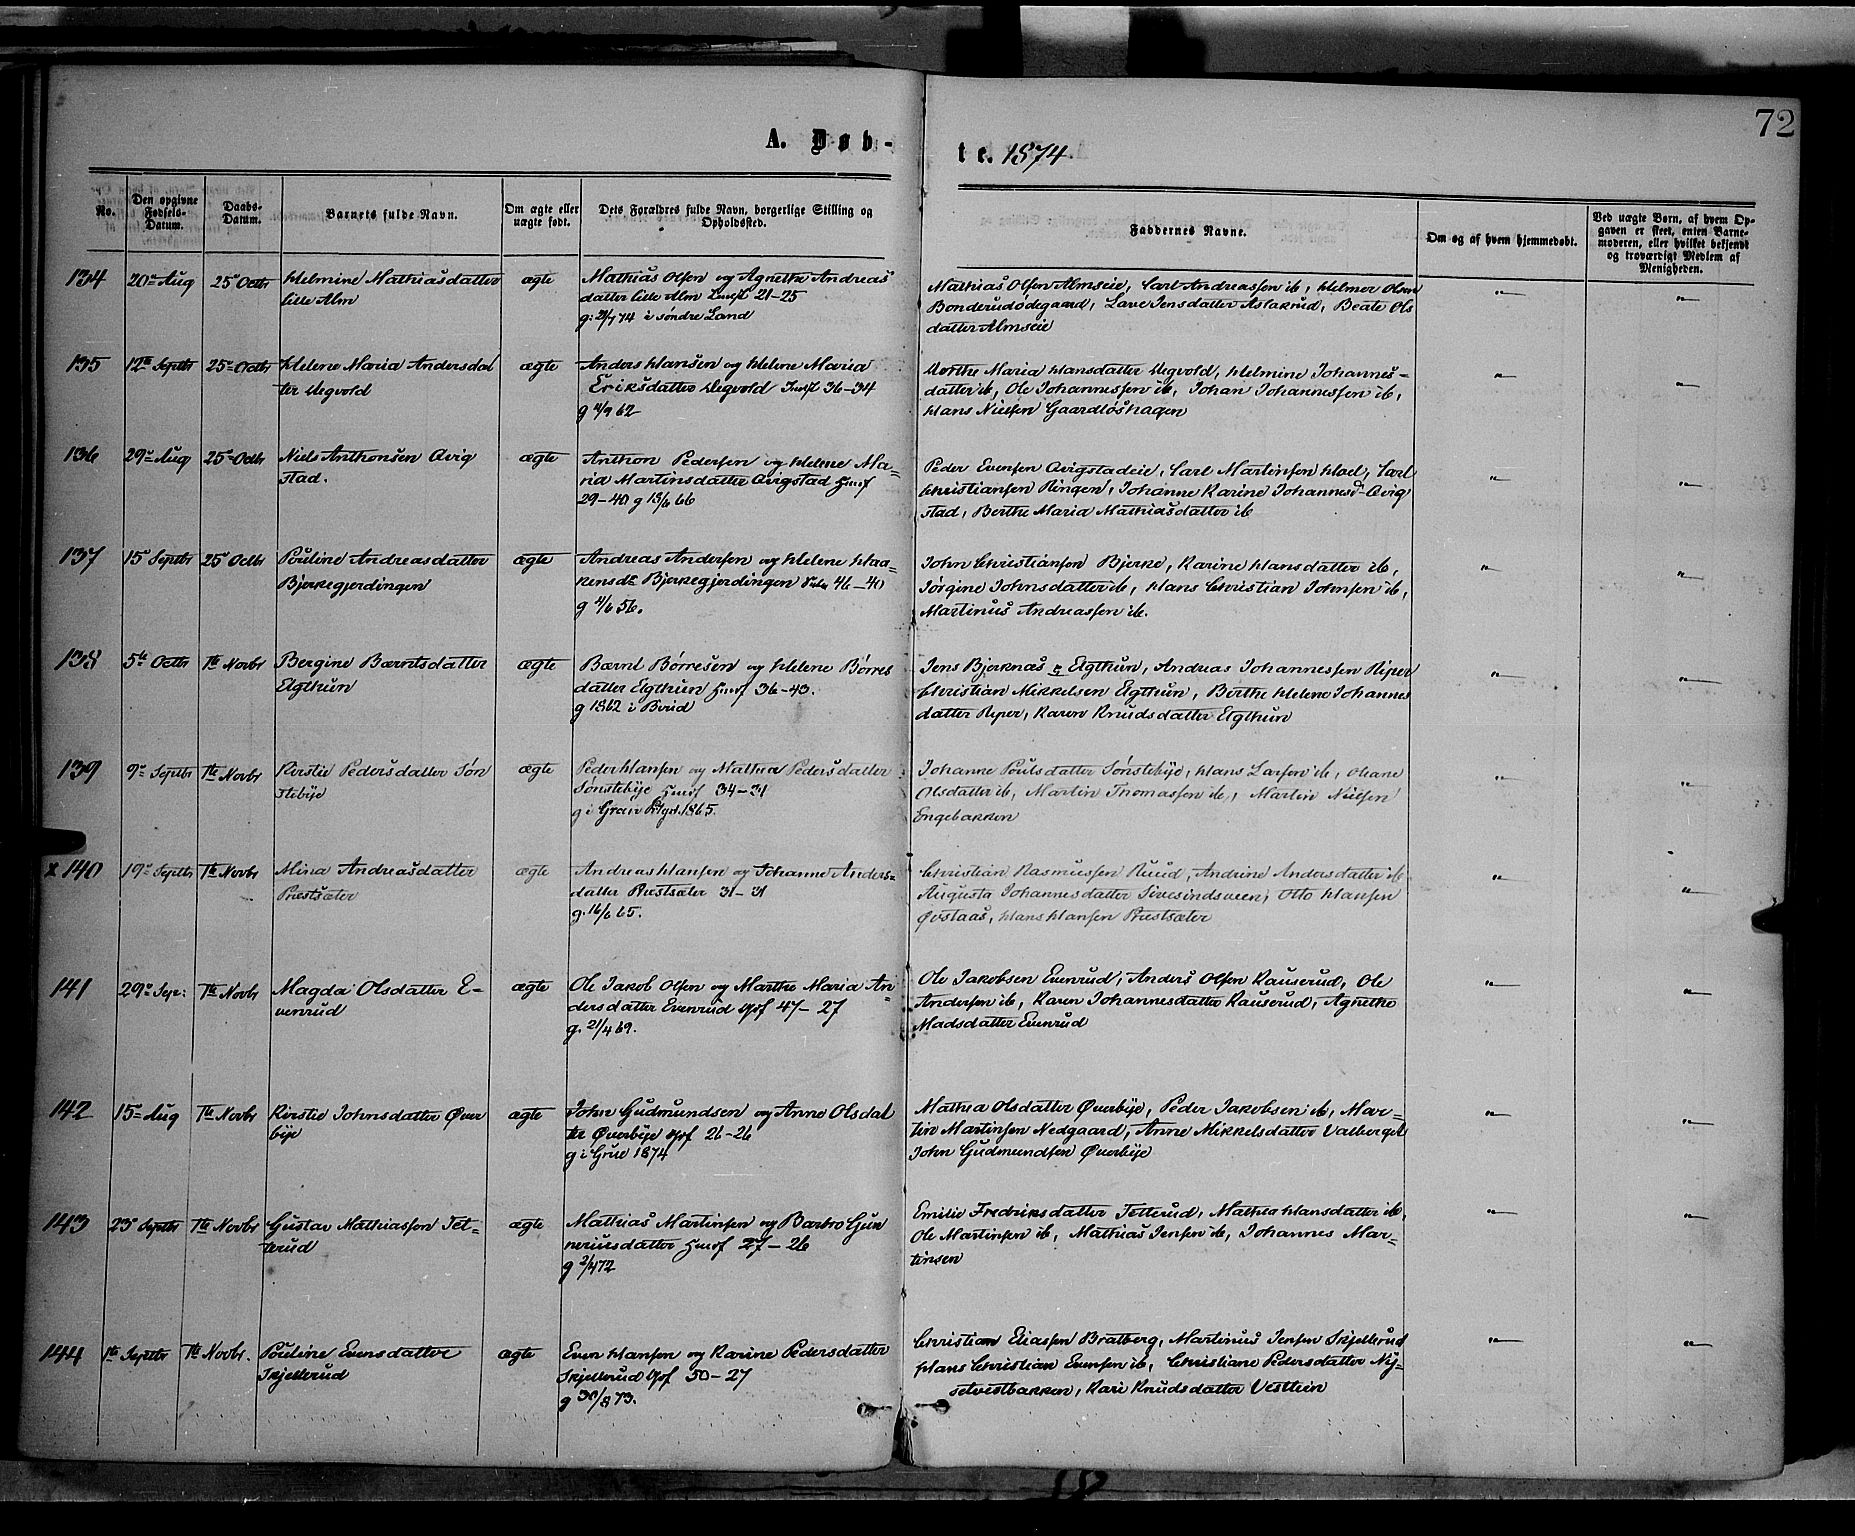 72
A. Døb-
te. 1874
No.
Den opgivne Fødsels-Datum.
Daabs-Datum.
Barnets fulde Navn.
Om ægte eller uægte født.
Dets Forældres fulde Navn, borgerlige Stilling og Opholdssted.
Faddernes Navne.
Om og af hvem hjemmedøbt.
Ved uægte Børn, af hvem Opgaven er skeet, enten Barnemoderen, eller hvilket bekjendt og troværdigt Medlem af Menigheden.
134 20de Aug 25de Octbr Helmine Mathiasdatter
Lille Alm
ægte
Mathias Olsen og Agnethe Andreas
datter Lille Alm 21-25
i søndre Land
Mathias Olsen Almseie, Carl Andreassen ib, Helmer Olsen
Bonderudødegaard, Lave Jensdatter Aslakrud, Beate Ols
datter Almseie
" "
135 12te Septbr 25de Octbr Helene Maria Andersdat
ter Degvold
ægte
Anders Hansen og Helene Maria
Eriksdatter Degvold Indst 36-34
g 4/9 62
Dorthe Maria Hansdatter Degvold, Helmine Johannes-
datter ib, Ole Johannessen ib, Johan Johannessen ib,
Hans Nielsen Gaardløshagen
" "
136 29de Aug 25de Octbr Niels Anthonsen Qvig
stad.
ægte
Anthon Pedersen og Helene Ma-
ria Martinsdatter Qvigstad
29-40 g 13/6 66
Peder Evensen Qvigstadeie, Carl Martinsen Hoel, Carl
Christiansen Ringen, Johanne Karine Johannesd. Qvig
stad, Berthe Maria Mathiasdatter ib
" "
137 15de Septbr 25de Octbr Pouline Andreasdatter
Bjerkegjerdingen
ægte
Andreas Andersen og Helene Haa-
kensdr Bjerkegjerdingen 46-40
g 4/6 56.
John Christiansen Bjerke, Karine Hansdatter ib,
Jørgine Johnsdatter ib, Hans Christian Johnsen ib,
Martinus Andreassen ib.
" "
138 5te Octbr 1te Novbr Bergine Bærntsdatter
Elgthun
ægte
Bærnt Børresen og Helene Børres
datter Elgthun 36-43.
g 1862 i Birid
Jens Bjerknæs Elgthun, Andreas Johannessen Riper
Christian Mikkelsen Elgthun, Berthe Helene Johannes
datter Riper, Karen Knudsdatter Elgthun
" "
139 9de Septbr 1te Novbr Kirstie Pedersdatter Søn
stebye
ægte
Peder Hansen og Mathea Pedersdatter
Sønstebye 34-31
g i Gran Prgd. 1865.
Johanne Poulsdatter Sønstebye, Hans Larsen ib, Oliane
Olsdatter ib, Martin Thomassen ib, Martin Nielsen
Engebakken
" "
x 140 19de Septbr 1te Novbr Mina Andreasdatter
Præstsæter
ægte
Andreas Hansen og Johanne Anders-
datter Præstsæter 31-31
g. 16/6 65.
Christian Rasmussen Ruud, Andrine Andersdatter ib
Augusta Johannesdatter Sivesindsveen, Otto Hansen
Øvstaas, Hans Hansen Præstsæter
" "
141 29de Sep: 1te Novbr Magda Olsdatter E-
venrud
ægte
Ole Jakob Olsen og Marthe Maria An-
dersdatter Evenrud 47-27
g. 21/4 69.
Ole Jakobsen Evenrud, Anders Olsen Kauserud, Ole
Andersen ib, Karen Johannesdatter Kauserud, Agnethe
Madsdatter Evenrud
" "
142 15de Aug 1te Novbr Kirstie Johnsdatter Øver
bye
ægte
John Gudmundsen og Anne Olsdat
ter Øverbye 26-26
g i Grue 1874
Mathea Olsdatter Øverbye, Peder Jakobsen ib, Mar-
tin Martinsen Nedgaard, Anne Mikkelsdatter Valberget
John Gudmundsen Øverbye
" "
143 23de Septbr 1te Novbr Gustav Mathiassen Tet-
terud
ægte
Mathias Martinsen og Barbro Gun
neriusdatter 27-26
g 2/4 72
Emilie Fredriksdatter Tetterud, Mathea Hansdatter ib,
Ole Martinsen ib, Mathias Jensen ib, Johannes Mar-
tinsen
" "
144 1te Septbr 1te Novbr. Pouline Evensdatter
Skjellerud
ægte
Even Hansen og Karine Pedersdatter
Skjellerud 50-27
g 30/8 73.
Christian Eliassen Bratberg, Martinus Jensen Skjellerud
Hans Christian Evensen ib, Christiane Pedersdatter Ny-
setvestbakken, Kari Knudsdatter Vestlien
" "